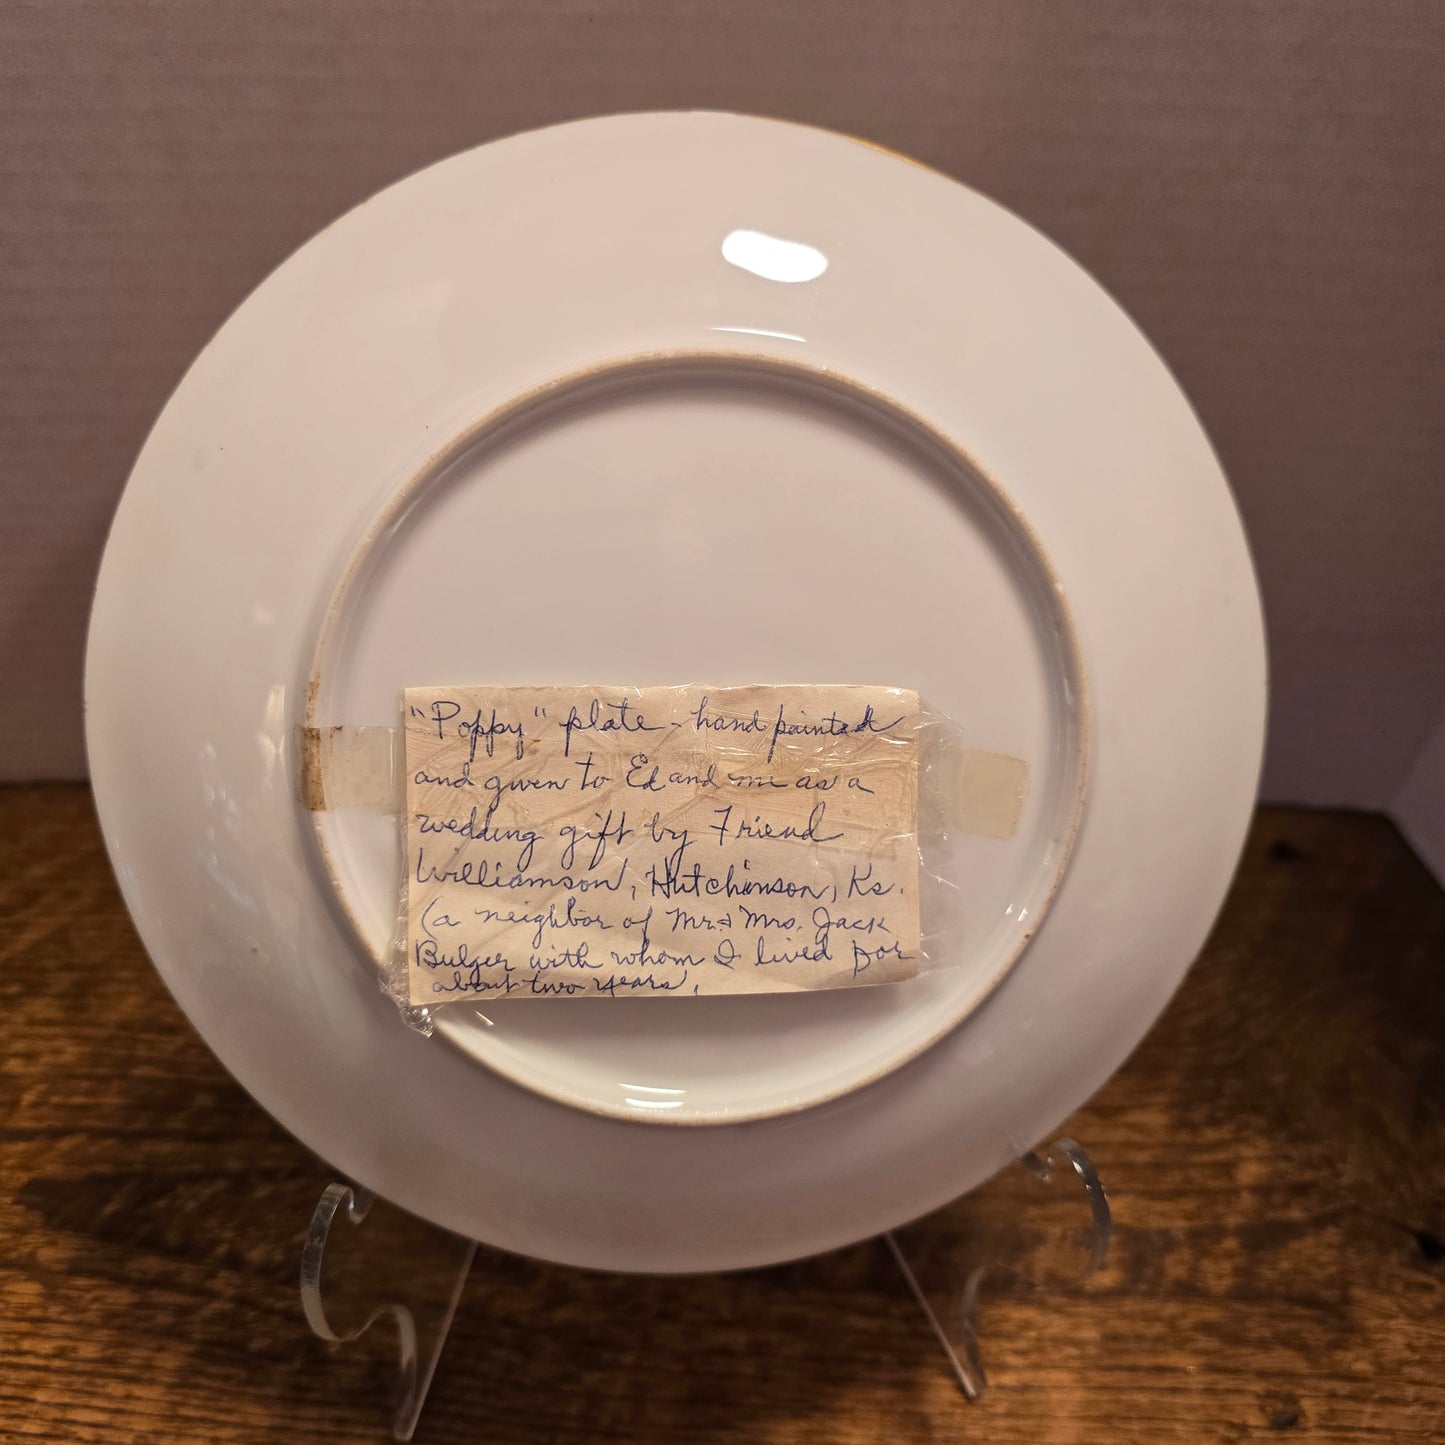 "Poppy" plate - hand painted
and given to Ed and me as a
wedding gift by Friend
Williamson, Hutchinson, Ks.
(a neighbor of Mr. & Mrs. Jack
Bulger with whom I lived for
about two years.